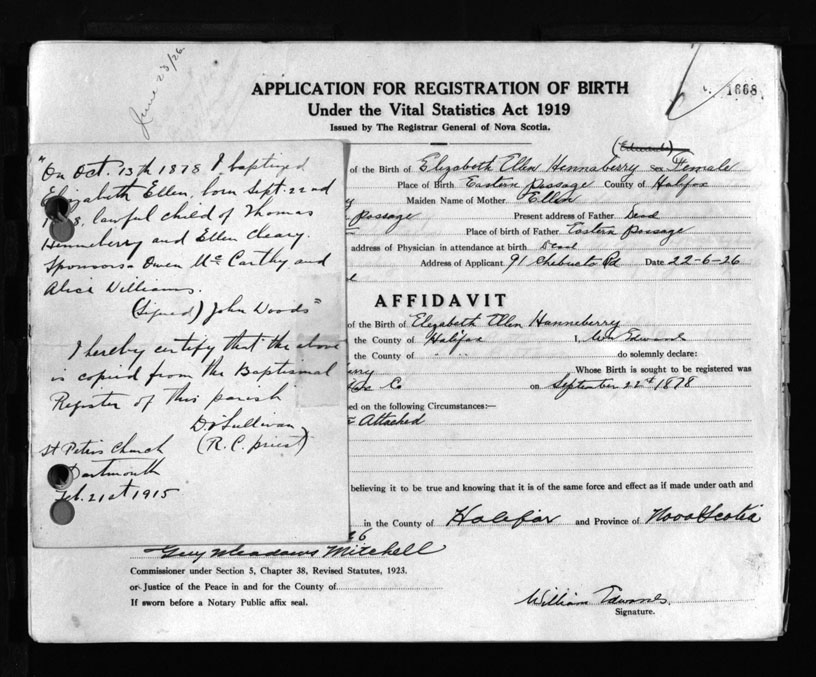 June 23/26
1668
APPLICATION FOR REGISTRATION OF BIRTH
Under the Vital Statistics Act 1919
Issued by The Registrar General of Nova Scotia.
"On Oct. 13th 1878 I baptized
Elizabeth Ellen, born Sept. 22nd
lawful child of Thomas
Henneberry and Ellen Cleary
Sponsors - Owen McCarthy and
Alice Williams.
(Signed) John Woods"
I hereby certify that the above
is copied from the Baptismal
Register of this parish
D. O'Sullivan
(R.C. priest)
St Peters Church
Dartmouth
Feb. 21st 1915
(Edwards)
of the Birth of Elizabeth Ellen Hennaberry sex Female
Place of Birth Eastern Passage County of Halifax
Maiden Name of Mother Ellen
Passage Present address of Father Dead
Place of birth of Father Eastern Passage
address of Physician in attendance at birth Dead
Address of Applicant 91 Chebucto Rd Date 22-6-26
AFFIDAVIT
of the Birth of Elizabeth Ellen Hanneberry
the County of Halifax I, Wm Edwards
the County of " " do solemnly declare:
Whose Birth is sought to be registered was
Co on September 22d 1878
ed on the following Circumstances:—
Attached
believing it to be true and knowing that it is of the same force and effect as if made under oath and
in the County of Halifax and Province of Nova Scotia
26
Guy Meadows Mitchell
Commissioner under Section 5, Chapter 38, Revised Statutes, 1923.
or Justice of the Peace in and for the County of
If sworn before a Notary Public affix seal.
William Edwards
Signature.